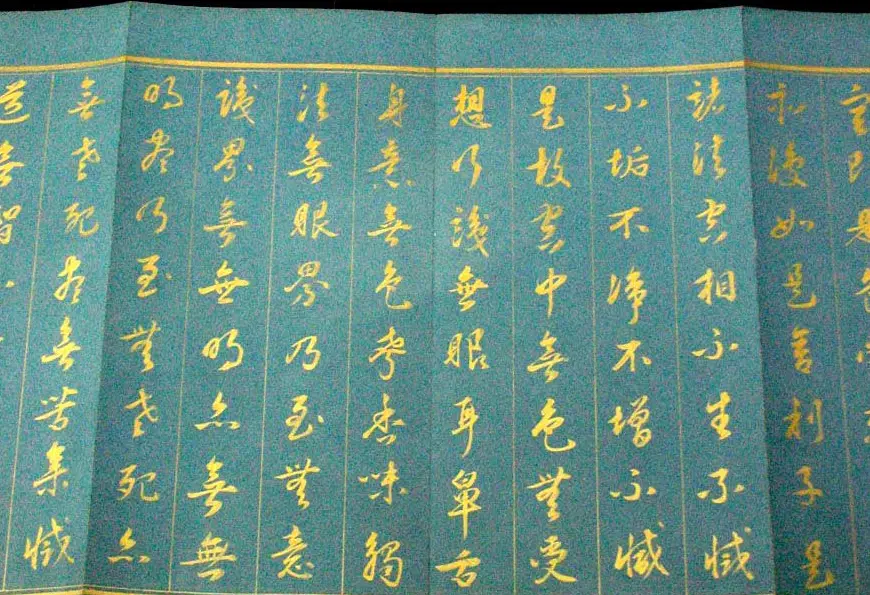 空即是色受
亦復如是舍利子是
諸法空相不生不滅
不垢不淨不增不減
是故空中無色無受
想行識無眼耳鼻舌
身意無色聲香味觸
法無眼界乃至無意
識界無無明亦無無
明盡乃至無老死亦
無老死盡無苦集滅
道無智